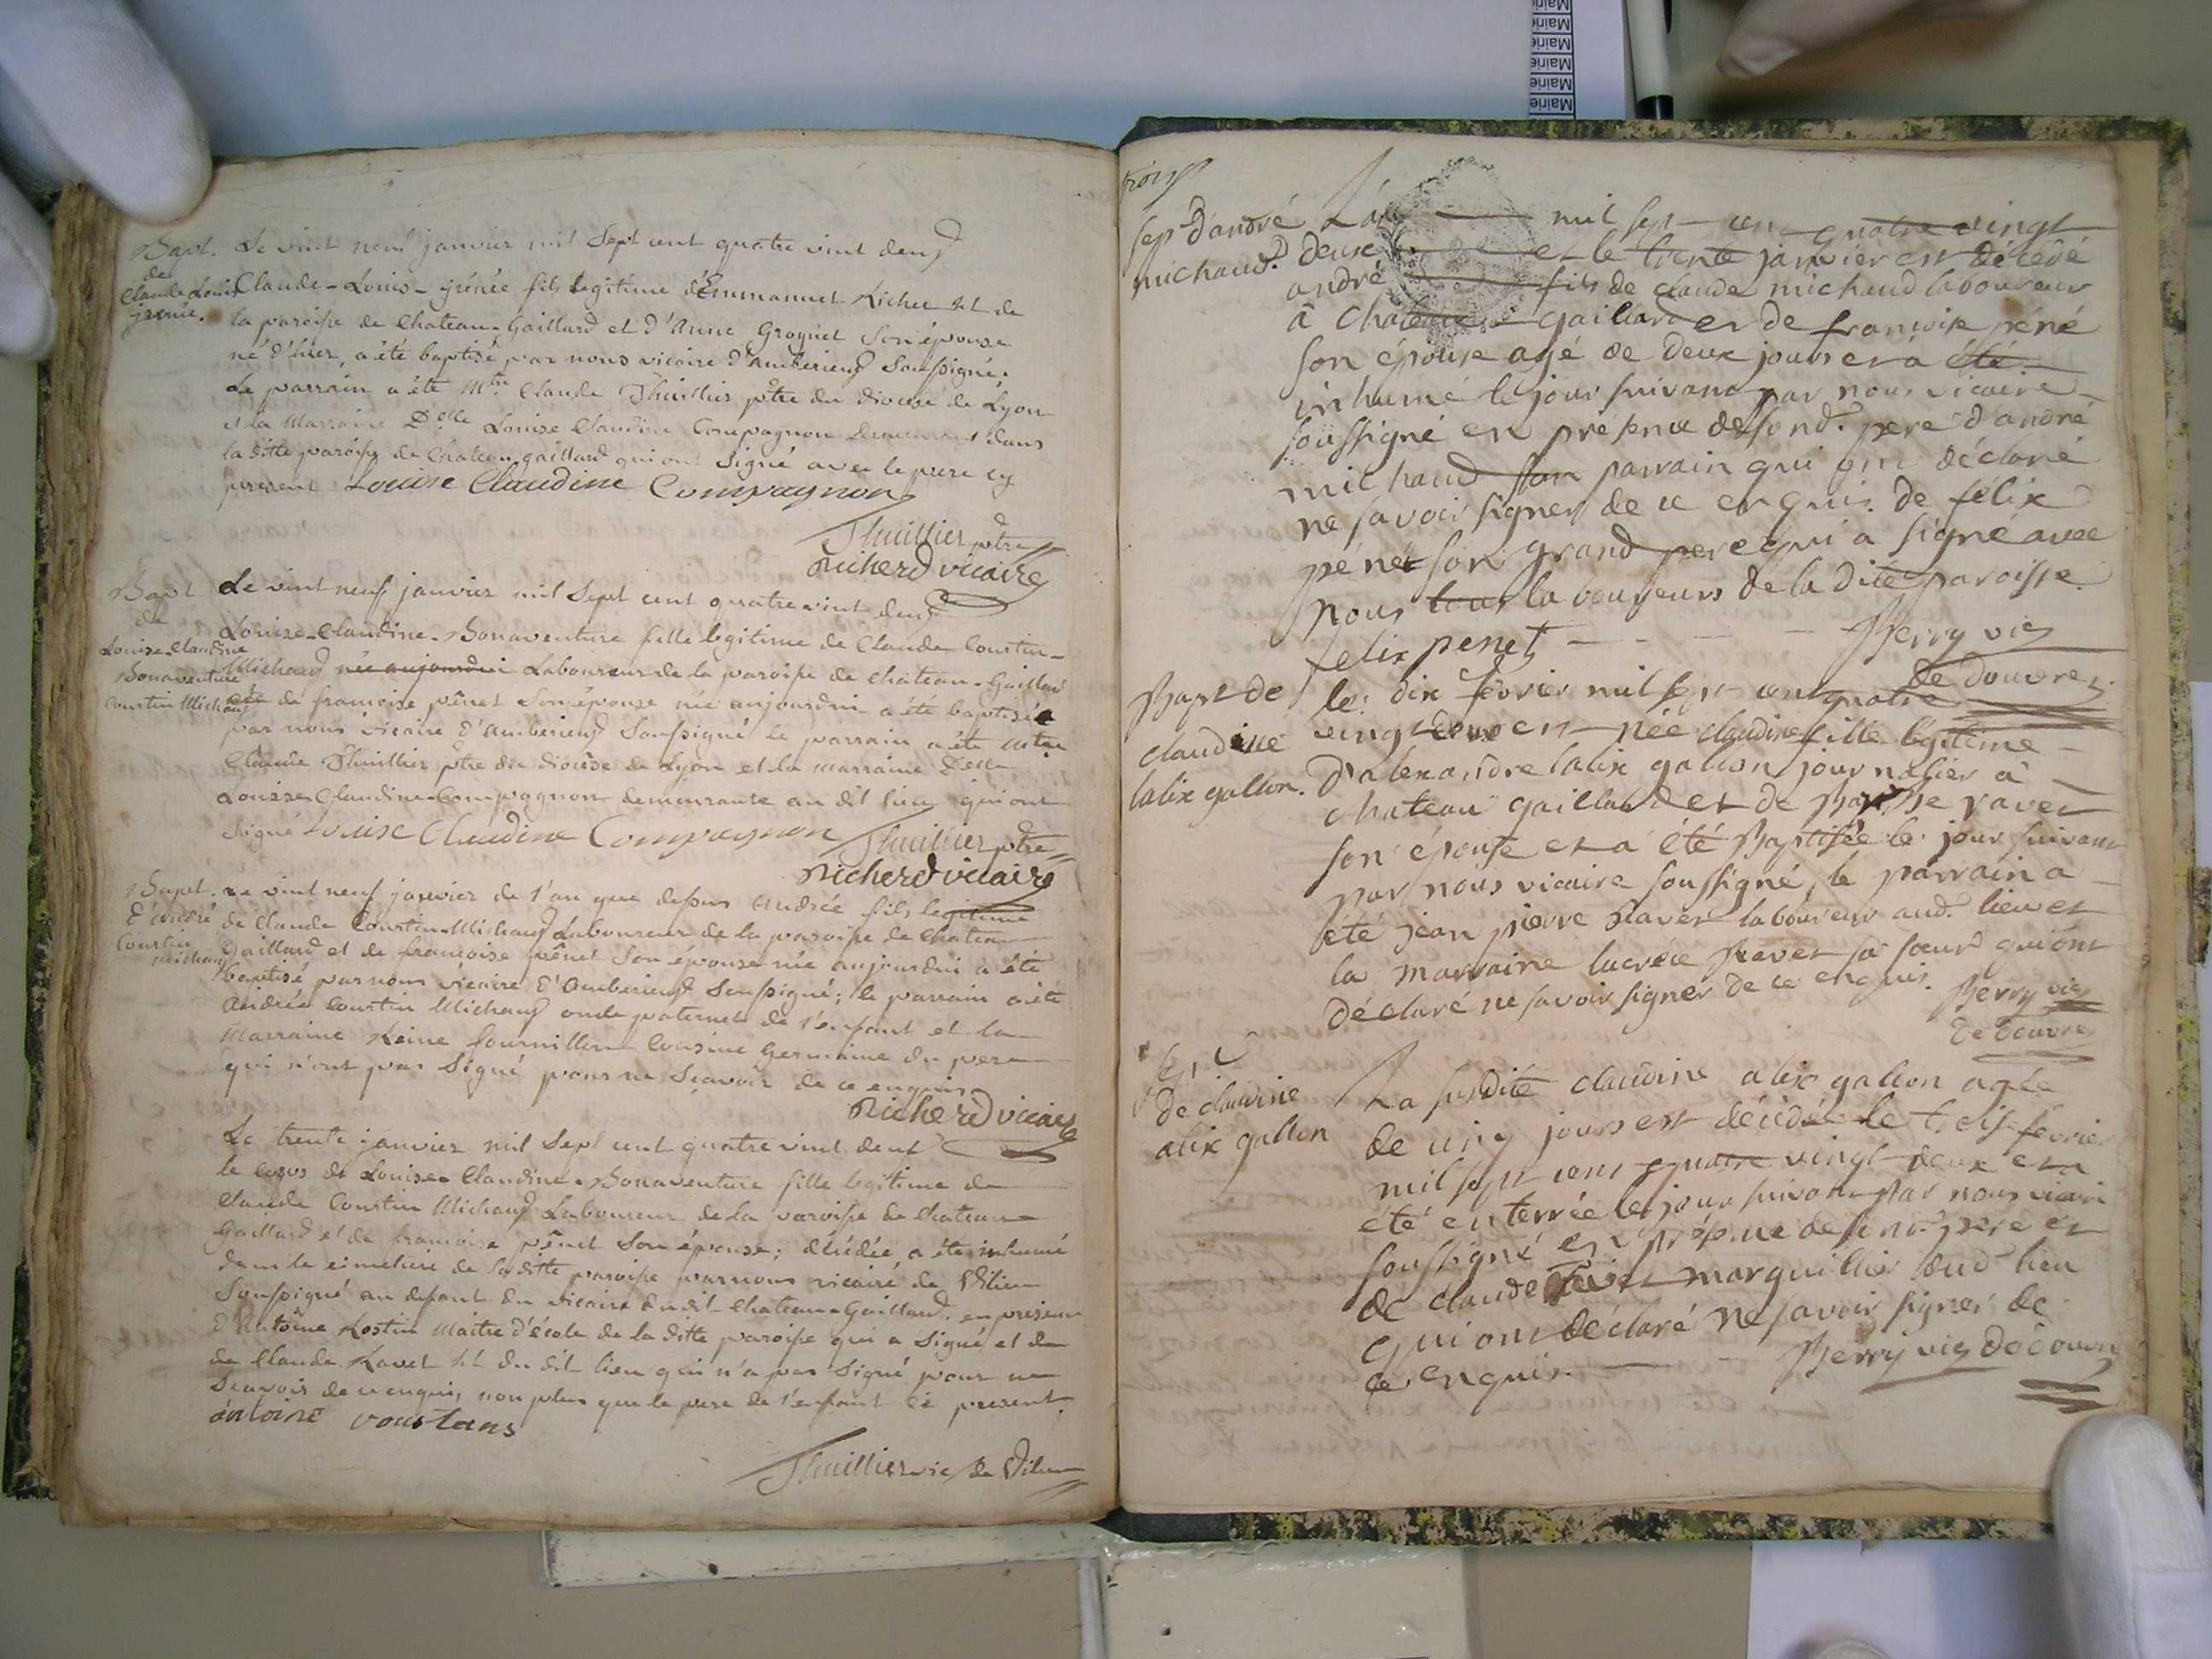 Mairie
Mairie
Mairie
Mairie
Mairie
Bapt. de Claude Louis jrénée.
Le vint neuf janvier mil Sept cent quatre vint deux
Claude-Louis-jrénée fils legitime d'Emmanuel Richer de
la paroisse de Chateau-Gaillard et d'Anne Grognet Son épouse
né d'hier, a été baptisé par nous vicaire d'Amberieux Soussigné.
Le parrain a été Mtre Claude Thuillier ptre du diocese de Lyon
et la Marraine Delle Louise Claudine Compagnon Demeurant dans
la ditte paroisse de Chateau gaillard qui ont Signé avec le pere cy
present Louise Claudine Compagnon
Thuillier ptre
Richerd vicaire
Bapt de Louise-Claudine Bonaventure Coustin Michaud
Le vint neuf janvier mil Sept cent quatre vint deux
Louise-Claudine-Bonaventure fille legitime de Claude Coustin-
Michaud née aujourdui Laboureur de la paroisse de chateau-Gaillard
et de françoise pênet Son épouse née aujourdui a été baptisée
par nous vicaire d'Amberieux Soussigné le parrain a été Mtre
Claude Thuillier ptre du diocèse de Lyon et la marraine Delle
Louise Claudine Compagnon demeurante au dit lieu qui ont
Signé Louise Claudine Compagnon Thuillier ptre
Richerd vicaire
Bapt. d'André Coustin michaud
Le vint neuf janvier de l'an que dessus Andrée fils legitime
de Claude Coustin-Michaud Laboureur de la paroisse de Chateau
Gaillard et de françoise pênet Son épouse née aujourdui a été
baptisé par nous vicaire d'Amberieux Soussigné; le parrain a été
Andrée Coustin Michaud oncle paternel de l'enfant et la
Marraine Reine fournillon Cousine Germaine du pere
qui n'ont pas Signé pour ne Scavoir de ce enquis
Richerd vicaire
Le trente janvier mil Sept cent quatre vint deux
le corps de Louise Claudine Bonaventure fille legitime de
Claude Coustin Michaud Laboureur de la paroisse de Chateau
Gaillard et de françoise pênet Son épouse; décédée a été inhumé
dans le cimetiere de la ditte paroisse par nous vicaire de
Soussigné au defaut du vicaire dudit Chateau-Gaillard. en presence
d'Antoine Maitre d'école de la ditte paroisse qui a Signé et de
de Claude Ravet du dit lieu qui n'a pas Signé pour ne
Scavoir de ce enquis, non plus que le pere de l'enfant ici present.
antoine
Thuillier vic de
trois
sep. d'andré michaud.
L'an mil sept cent quatre vingt
deux et le trente janvier est décédé
andré fils de claude michaud laboureur
à chateau gaillard et de françoise péné
son épouse agé de deux jours et a été
inhumé le jour suivant par nous vicaire
soussigné en présence de sond. pere d'andré
michaud son parrain qui ont déclaré
ne savoir signer de ce enquis. de félix
pénet son grand pere qui a signé avec
nous tous laboureurs de la dite paroisse.
felix penet Berry vic
de douvres
Bapt de claudine lalix gallon.
le dix fevrier mil sept cent quatre
vingt deux est née claudine fille légitime
d'alexandre lalix gallon journalier à
chateau gaillard et de ravet
son épouse et a été Baptisée le jour suivant
par nous vicaire soussigné, le parrain a
été jean pierre Ravet laboureur aud. lieu et
la marraine lucréce Ravet sa soeur qui ont
déclaré ne savoir signer de ce enquis. Berry vic
de douvres
sep de claudine alix gallon
La susdite claudine alix gallon agée
de cinq jours est décédée le fevrier
mil sept cent quatre vingt deux et a
été enterrée le jour suivant par nous vicaire
soussigné en présence de sond. pere et
de claude Ravet marguillier dud lieu
qui ont déclaré ne savoir signer de
ce enquis. Berry vic de douvres